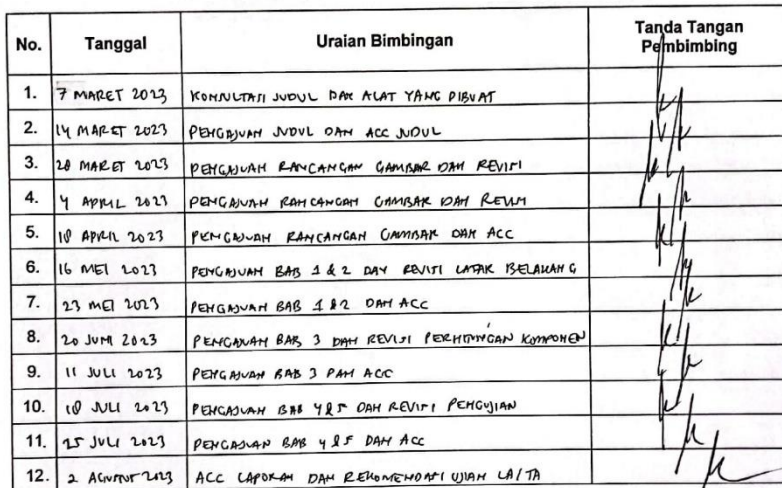 No. Tanggal Uraian Bimbingan Tanda Tangan Pembimbing
1. 7 MARET 2023 KONSULTASI JUDUL DAN ALAT YANG DIBUAT
2. 14 MARET 2023 PENGAJUAN JUDUL DAN ACC JUDUL
3. 28 MARET 2023 PENGAJUAN RANCANGAN GAMBAR DAN REVISI
4. 4 APRIL 2023 PENGAJUAN RANCANGAN GAMBAR DAN REVISI
5. 18 APRIL 2023 PENGAJUAN RANCANGAN GAMBAR DAN ACC
6. 16 MEI 2023 PENGAJUAN BAB 1 & 2 DAN REVISI LATAR BELAKANG
7. 23 MEI 2023 PENGAJUAN BAB 1 & 2 DAN ACC
8. 20 JUNI 2023 PENGAJUAN BAB 3 DAN REVISI PERHITUNGAN KOMPONEN
9. 11 JULI 2023 PENGAJUAN BAB 3 DAN ACC
10. 18 JULI 2023 PENGAJUAN BAB 4 & 5 DAN REVISI PENGUJIAN
11. 25 JULI 2023 PENGAJUAN BAB 4 & 5 DAN ACC
12. 2 AGUSTUS 2023 ACC LAPORAN DAN REKOMENDASI UJIAN LA/TA